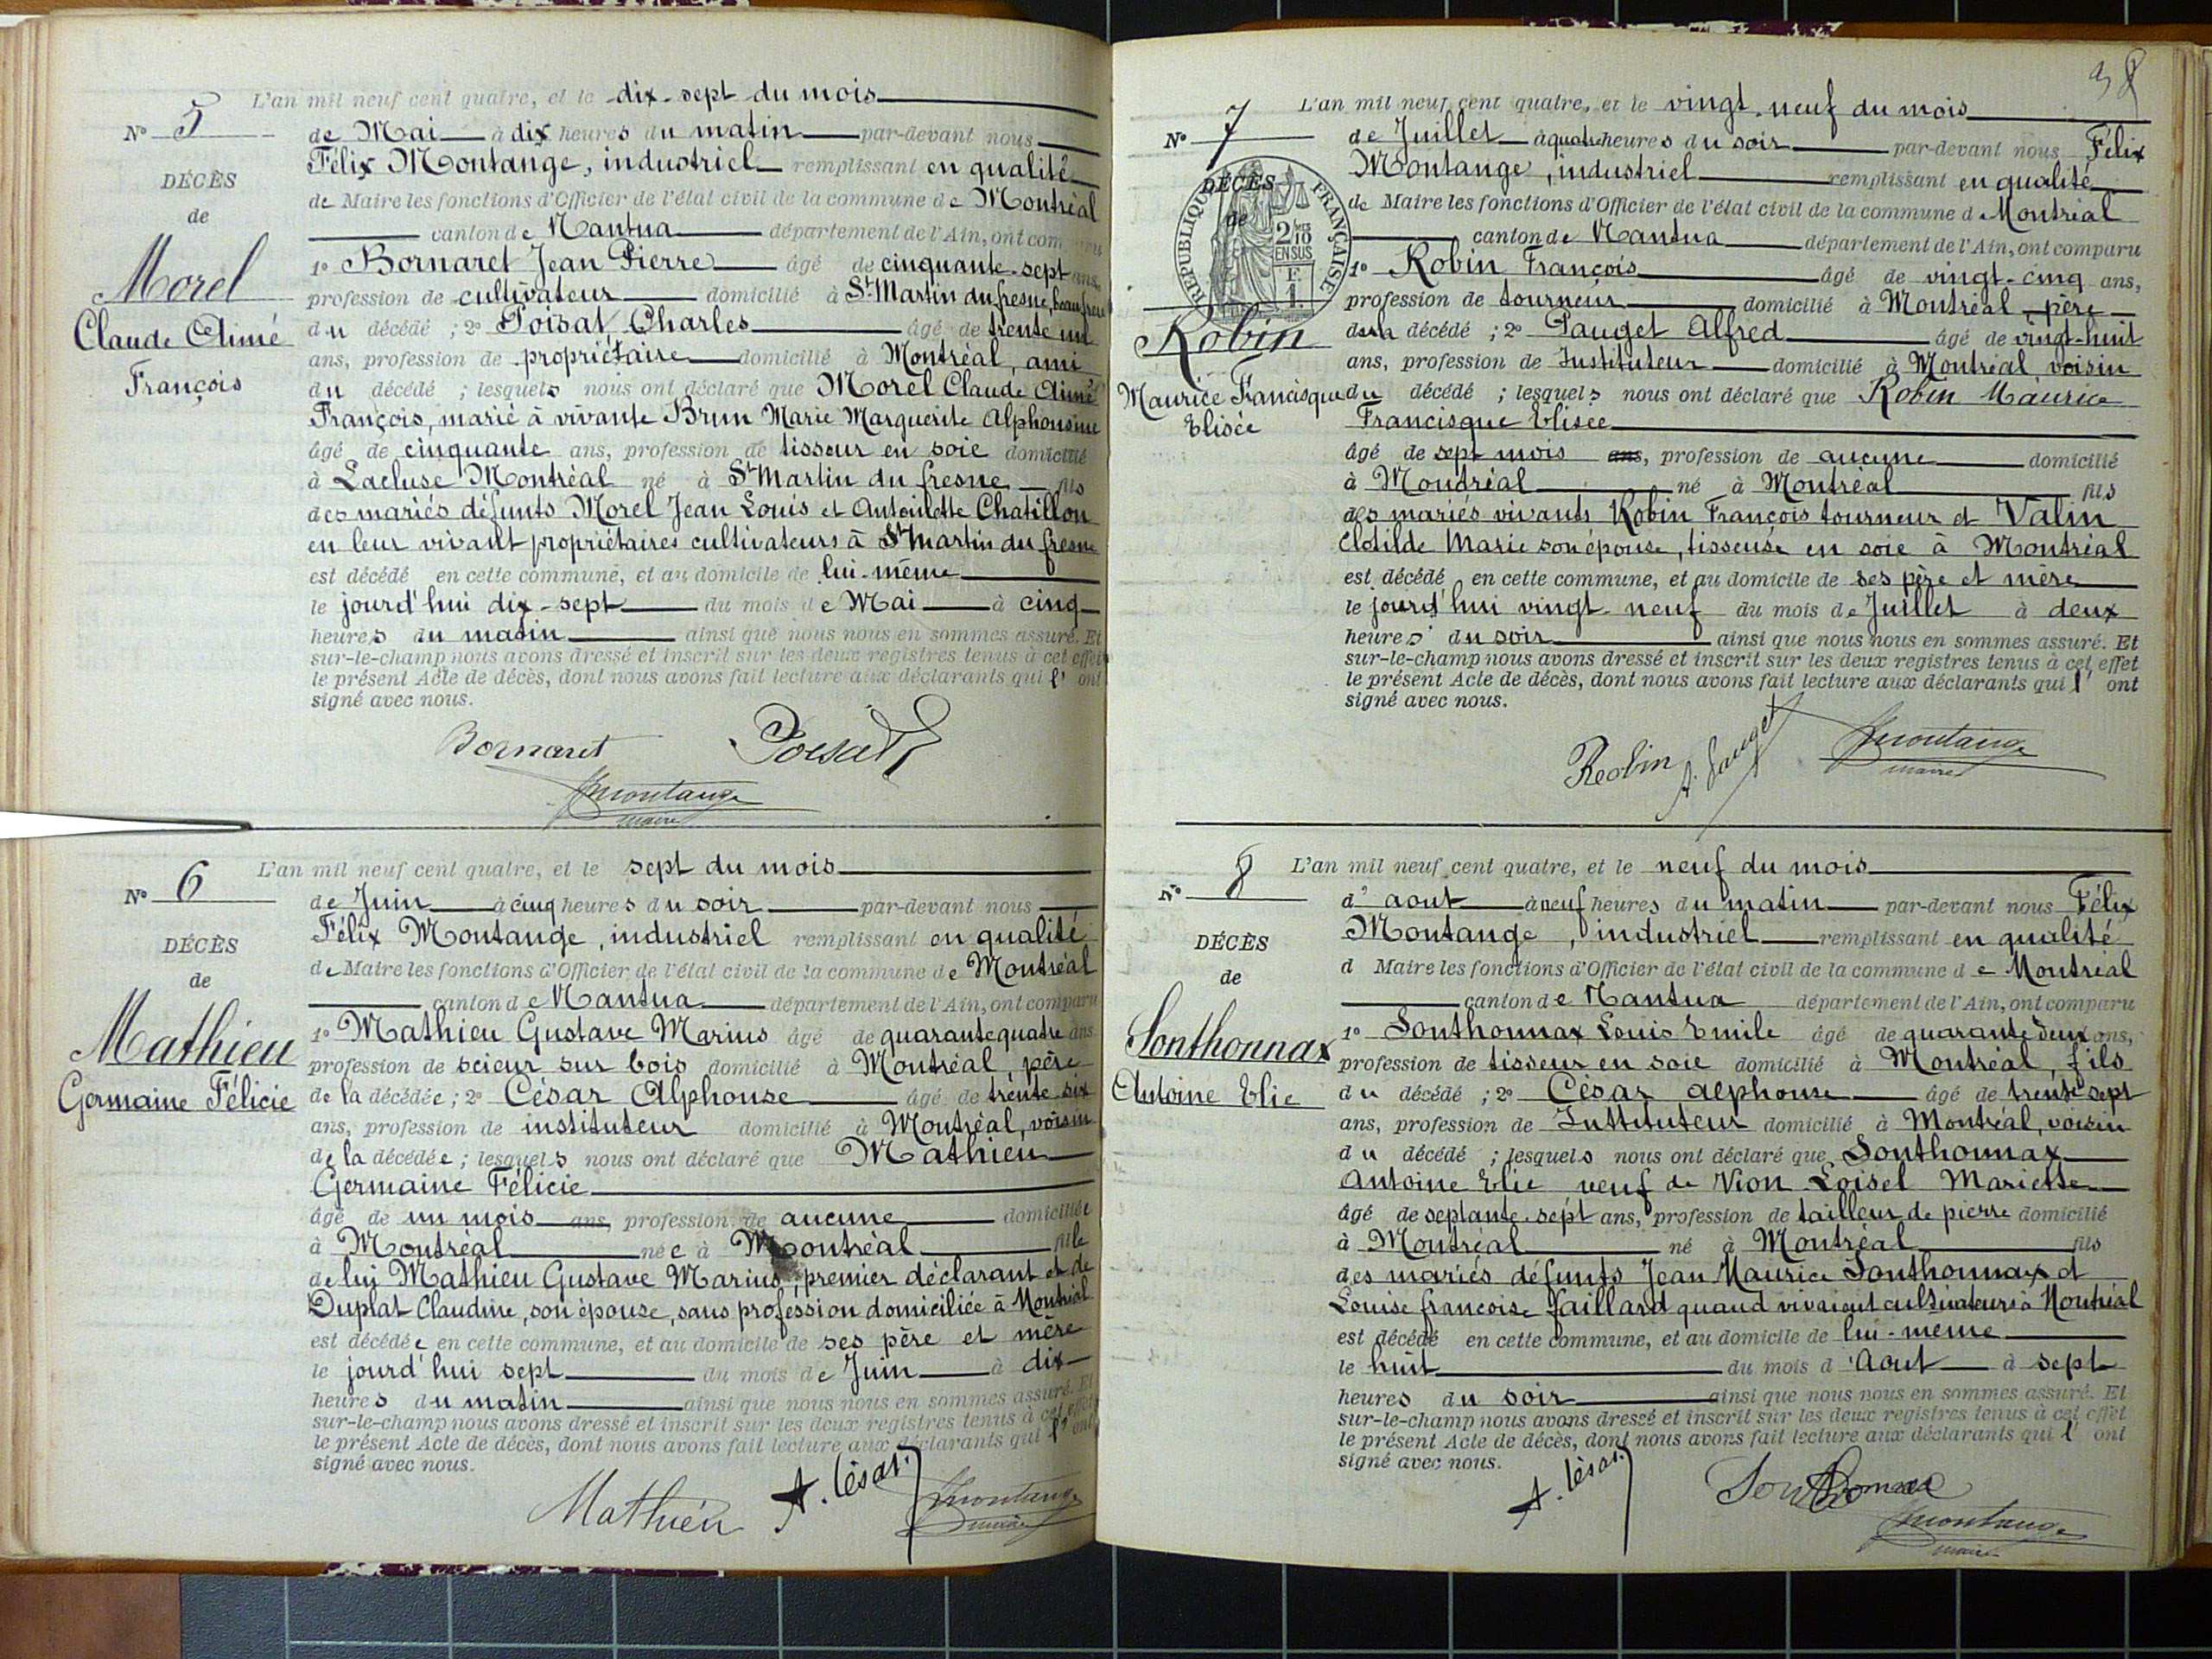 L'an mil neuf cent quatre, et le dix-sept du mois
N° 5
de Mai à dix heures du matin par-devant nous
Félix Montange, industriel remplissant en qualité
DÉCÈS
de Maire les fonctions d'Officier de l'état civil de la commune de Montréal
de
canton de Nantua département de l'Ain, ont comparu
Morel
1° Bornaret Jean Pierre âgé de cinquante-sept ans,
profession de cultivateur domicilié à St Martin du fresne, beau frère
Claude Aimé
du décédé ; 2° Poisat Charles âgé de trente un
ans, profession de propriétaire domicilié à Montréal, ami
François
du décédé ; lesquels nous ont déclaré que Morel Claude Aimé
François, marié à vivante Brun Marie Marguerite Alphonsine
âgé de cinquante ans, profession de tisseur en soie domicilié
à Lacluse Montréal né à St Martin du fresne fils
des mariés défunts Morel Jean Louis et Antoinette Chatillon
en leur vivant propriétaires cultivateurs à St Martin du fresne
est décédé en cette commune, et au domicile de lui-même
le jourd'hui dix-sept du mois de Mai à cinq
heures du matin ainsi que nous nous en sommes assuré. Et
sur-le-champ nous avons dressé et inscrit sur les deux registres tenus à cet effet
le présent Acte de décès, dont nous avons fait lecture aux déclarants qui l'ont
signé avec nous.
Bornaret Poisat
Montange
maire
L'an mil neuf cent quatre, et le sept du mois
N° 6
de Juin à cinq heures du soir par-devant nous
Félix Montange, industriel remplissant en qualité
DÉCÈS
de Maire les fonctions d'Officier de l'état civil de la commune de Montréal
de
canton de Nantua département de l'Ain, ont comparu
Mathieu
1° Mathieu Gustave Marius âgé de quarante quatre ans
profession de scieur sur bois domicilié à Montréal, père
Germaine Félicie
de la décédée ; 2° César Alphonse âgé de trente-six
ans, profession de instituteur domicilié à Montréal, voisin
de la décédée ; lesquels nous ont déclaré que Mathieu
Germaine Félicie
âgé de un mois ans, profession de aucune domiciliée
à Montréal née à Montréal fille
de lui Mathieu Gustave Marius, premier déclarant et de
Duplat Claudine, son épouse, sans profession domiciliée à Montréal
est décédée en cette commune, et au domicile de ses père et mère
le jourd'hui sept du mois de Juin à dix
heures du matin ainsi que nous nous en sommes assuré. Et
sur-le-champ nous avons dressé et inscrit sur les deux registres tenus à cet effet
le présent Acte de décès, dont nous avons fait lecture aux déclarants qui l'ont
signé avec nous.
Mathieu A. César Montange
maire
L'an mil neuf cent quatre, et le vingt-neuf du mois
N° 7
de Juillet à quatre heures du soir par-devant nous Félix
Montange, industriel remplissant en qualité
DÉCÈS
de Maire les fonctions d'Officier de l'état civil de la commune de Montréal
de
RÉPUBLIQUE FRANÇAISE
2/10 EN SUS
canton de Nantua département de l'Ain, ont comparu
1° Robin François âgé de vingt-cinq ans,
profession de tourneur domicilié à Montréal, père
Robin
du décédé ; 2° Pauget Alfred âgé de vingt-huit
ans, profession de Instituteur domicilié à Montréal voisin
Maurice Francisque
du décédé ; lesquels nous ont déclaré que Robin Maurice
Elisée
Francisque Elisée
âgé de sept mois ans, profession de aucune domicilié
à Montréal né à Montréal fils
des mariés vivants Robin François tourneur et Valin
Clotilde Marie son épouse, tisseuse en soie à Montréal
est décédé en cette commune, et au domicile de ses père et mère
le jourd'hui vingt-neuf du mois de Juillet à deux
heures du soir ainsi que nous nous en sommes assuré. Et
sur-le-champ nous avons dressé et inscrit sur les deux registres tenus à cet effet
le présent Acte de décès, dont nous avons fait lecture aux déclarants qui l'ont
signé avec nous.
Robin A. Pauget Montange
maire
L'an mil neuf cent quatre, et le neuf du mois
N° 8
d'aout à neuf heures du matin par-devant nous Félix
Montange, industriel remplissant en qualité
DÉCÈS
d Maire les fonctions d'Officier de l'état civil de la commune de Montréal
de
canton de Nantua département de l'Ain, ont comparu
Sonthonnax
1° Sonthonnax Louis Emile âgé de quarante deux ans,
profession de tisseur en soie domicilié à Montréal, fils
Antoine Elie
du décédé ; 2° César alphonse âgé de trente sept
ans, profession de Instituteur domicilié à Montréal, voisin
du décédé ; lesquels nous ont déclaré que Sonthonnax
Antoine Elie veuf de Vion Loisel Mariette
âgé de septante-sept ans, profession de tailleur de pierre domicilié
à Montréal né à Montréal fils
des mariés défunts Jean Maurice Sonthonnax et
Louise françoise faillard quand vivaient cultivateurs à Montréal
est décédé en cette commune, et au domicile de lui-même
le huit du mois d'Aout à sept
heures du soir ainsi que nous nous en sommes assuré. Et
sur-le-champ nous avons dressé et inscrit sur les deux registres tenus à cet effet
le présent Acte de décès, dont nous avons fait lecture aux déclarants qui l'ont
signé avec nous.
A. César Sonthonnax
Montange
maire